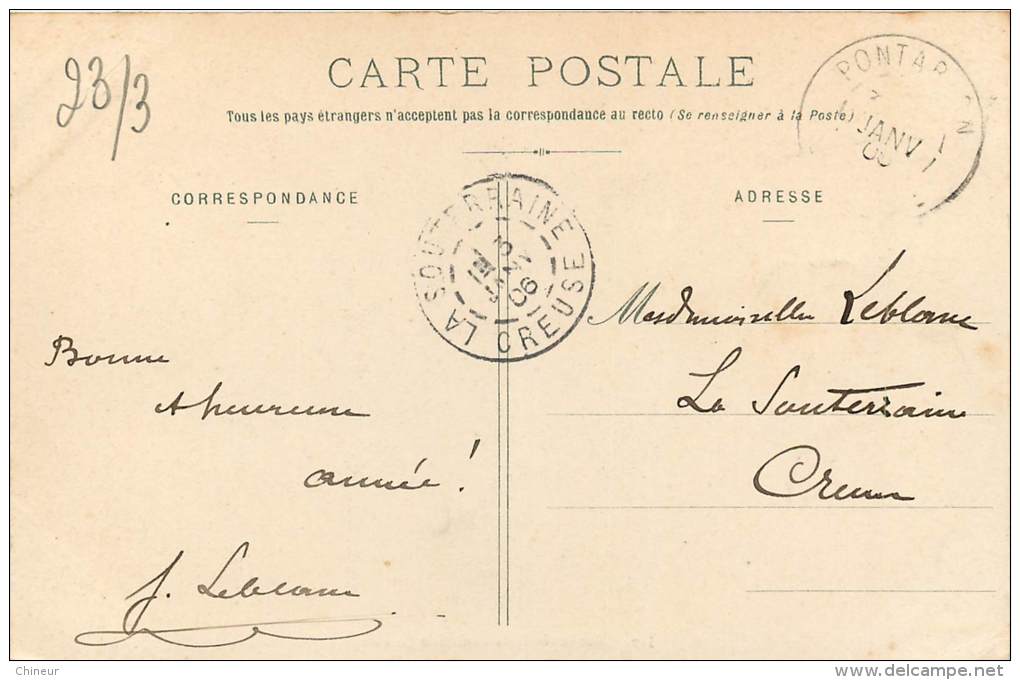 23/3
CARTE POSTALE
Tous les pays étrangers n'acceptent pas la correspondance au recto (Se renseigner à la Poste)
CORRESPONDANCE
ADRESSE
PONTAR
JANV
LA SOUTERRAINE
3
JANV
06
CREUSE
Bonne
& heureuse
année !
J. Leblanc
Mademoiselle Leblanc
La Souterraine
Creuse
Chineur
www.delcampe.net